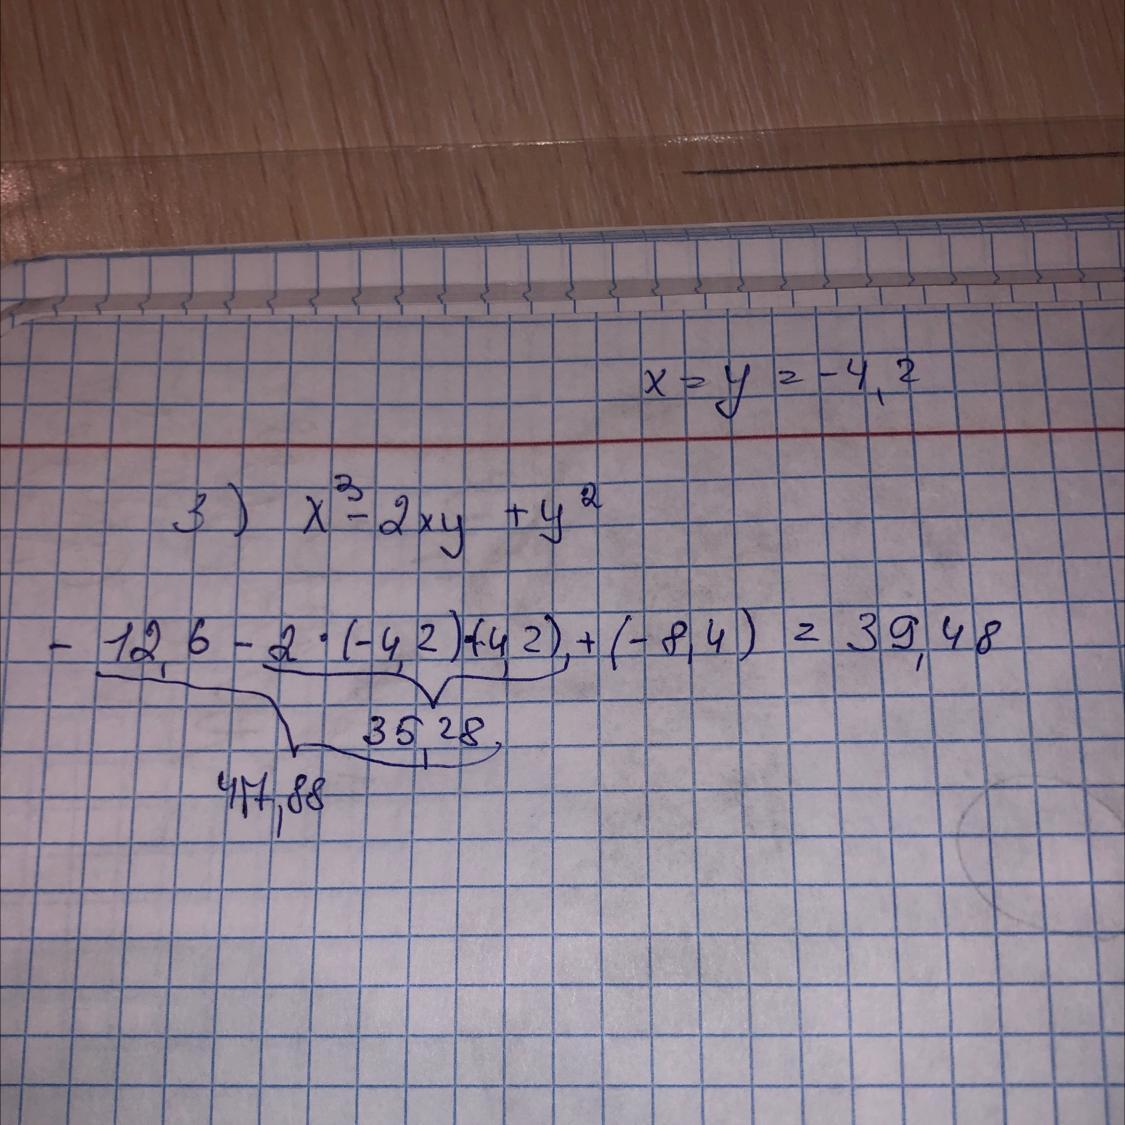 x = y = -4,2
3) x³ - 2xy + y²
- 12,6 - 2·(-4,2)·(4,2) + (-8,4) = 39,48
35,28
47,88